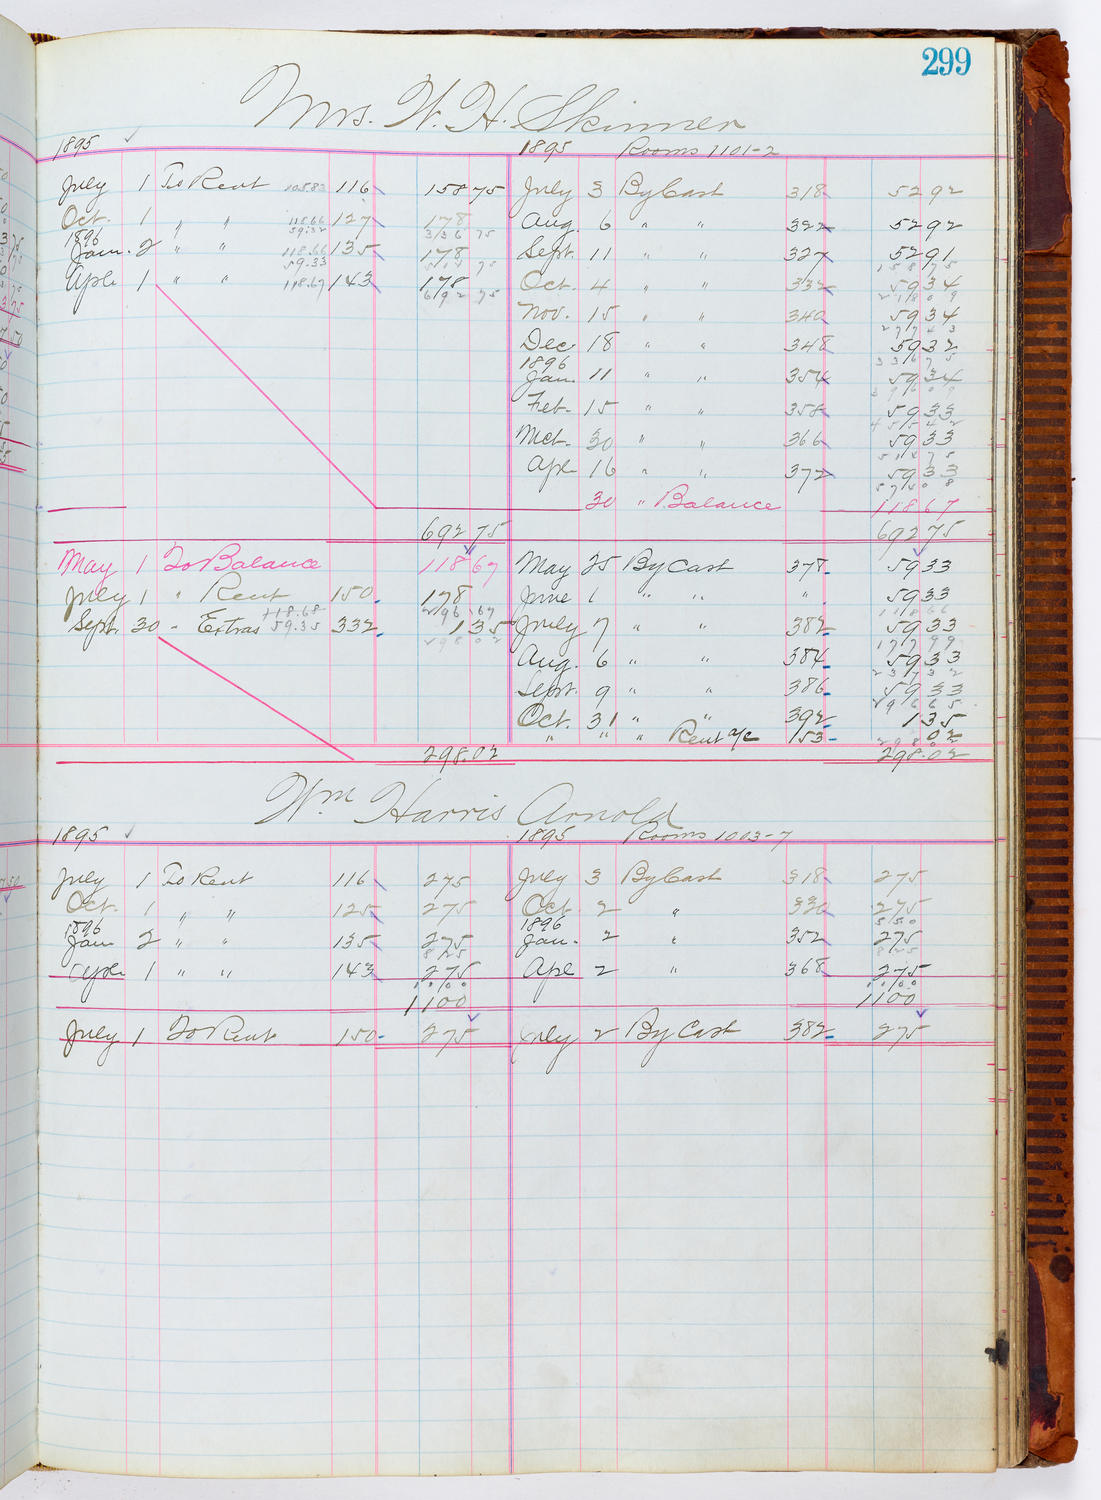 299
Mrs. W. H. Skinner
1895 1895 Rooms 1101-2
July 1 To Rent 105.83 116 158 75 July 3 By Cash 318 52 92
Oct. 1 " " 118.66 59.32 127 178 Aug. 6 " " 322 52 92
336 75
1896
Jan. 2 " " 118.66 59.33 135 178 Sept. 11 " " 327 52 91
515 75 158 75
Apl. 1 " " 118.67 143 178 Oct. 4 " " 332 59 34
692 75 218 09
Nov. 15 " " 340 59 34
277 43
Dec 18 " " 348 59 32
336 75
1896
Jan. 11 " " 354 59 34
396 09
Feb. 15 " " 358 59 33
455 42
Mch. 30 " " 366 59 33
514 75
Apl 16 " " 372 59 33
574 08
30 " Balance 118 67
692 75 692 75
May 1 To Balance 118 67 May 25 By Cash 378 59 33
July 1 " Rent 150 178 June 1 " " " 59 33
118.68 296.67 118 66
Sept. 30 " Extras 59.35 332 1 35 July 7 " " 382 59 33
298 02 177 99
Aug. 6 " " 384 59 33
237 32
Sept. 9 " " 386 59 33
296 65
Oct. 31 " " 392 1 35
" " " Rent a/c 153 02
298 02
298.02 298.02
Wm Harris Arnold
1895 1895 Rooms 1003-7
July 1 To Rent 116 275 July 3 By Cash 318 275
Oct. 1 " " 125 275 Oct. 2 " 330 275
550
1896 1896
Jan 2 " " 135 275 Jan. 2 " 352 275
825 825
Apl. 1 " " 143 275 Apl 2 " 368 275
1100 1100
1100 1100
July 1 To Rent 150 275 July 2 By Cash 382 275